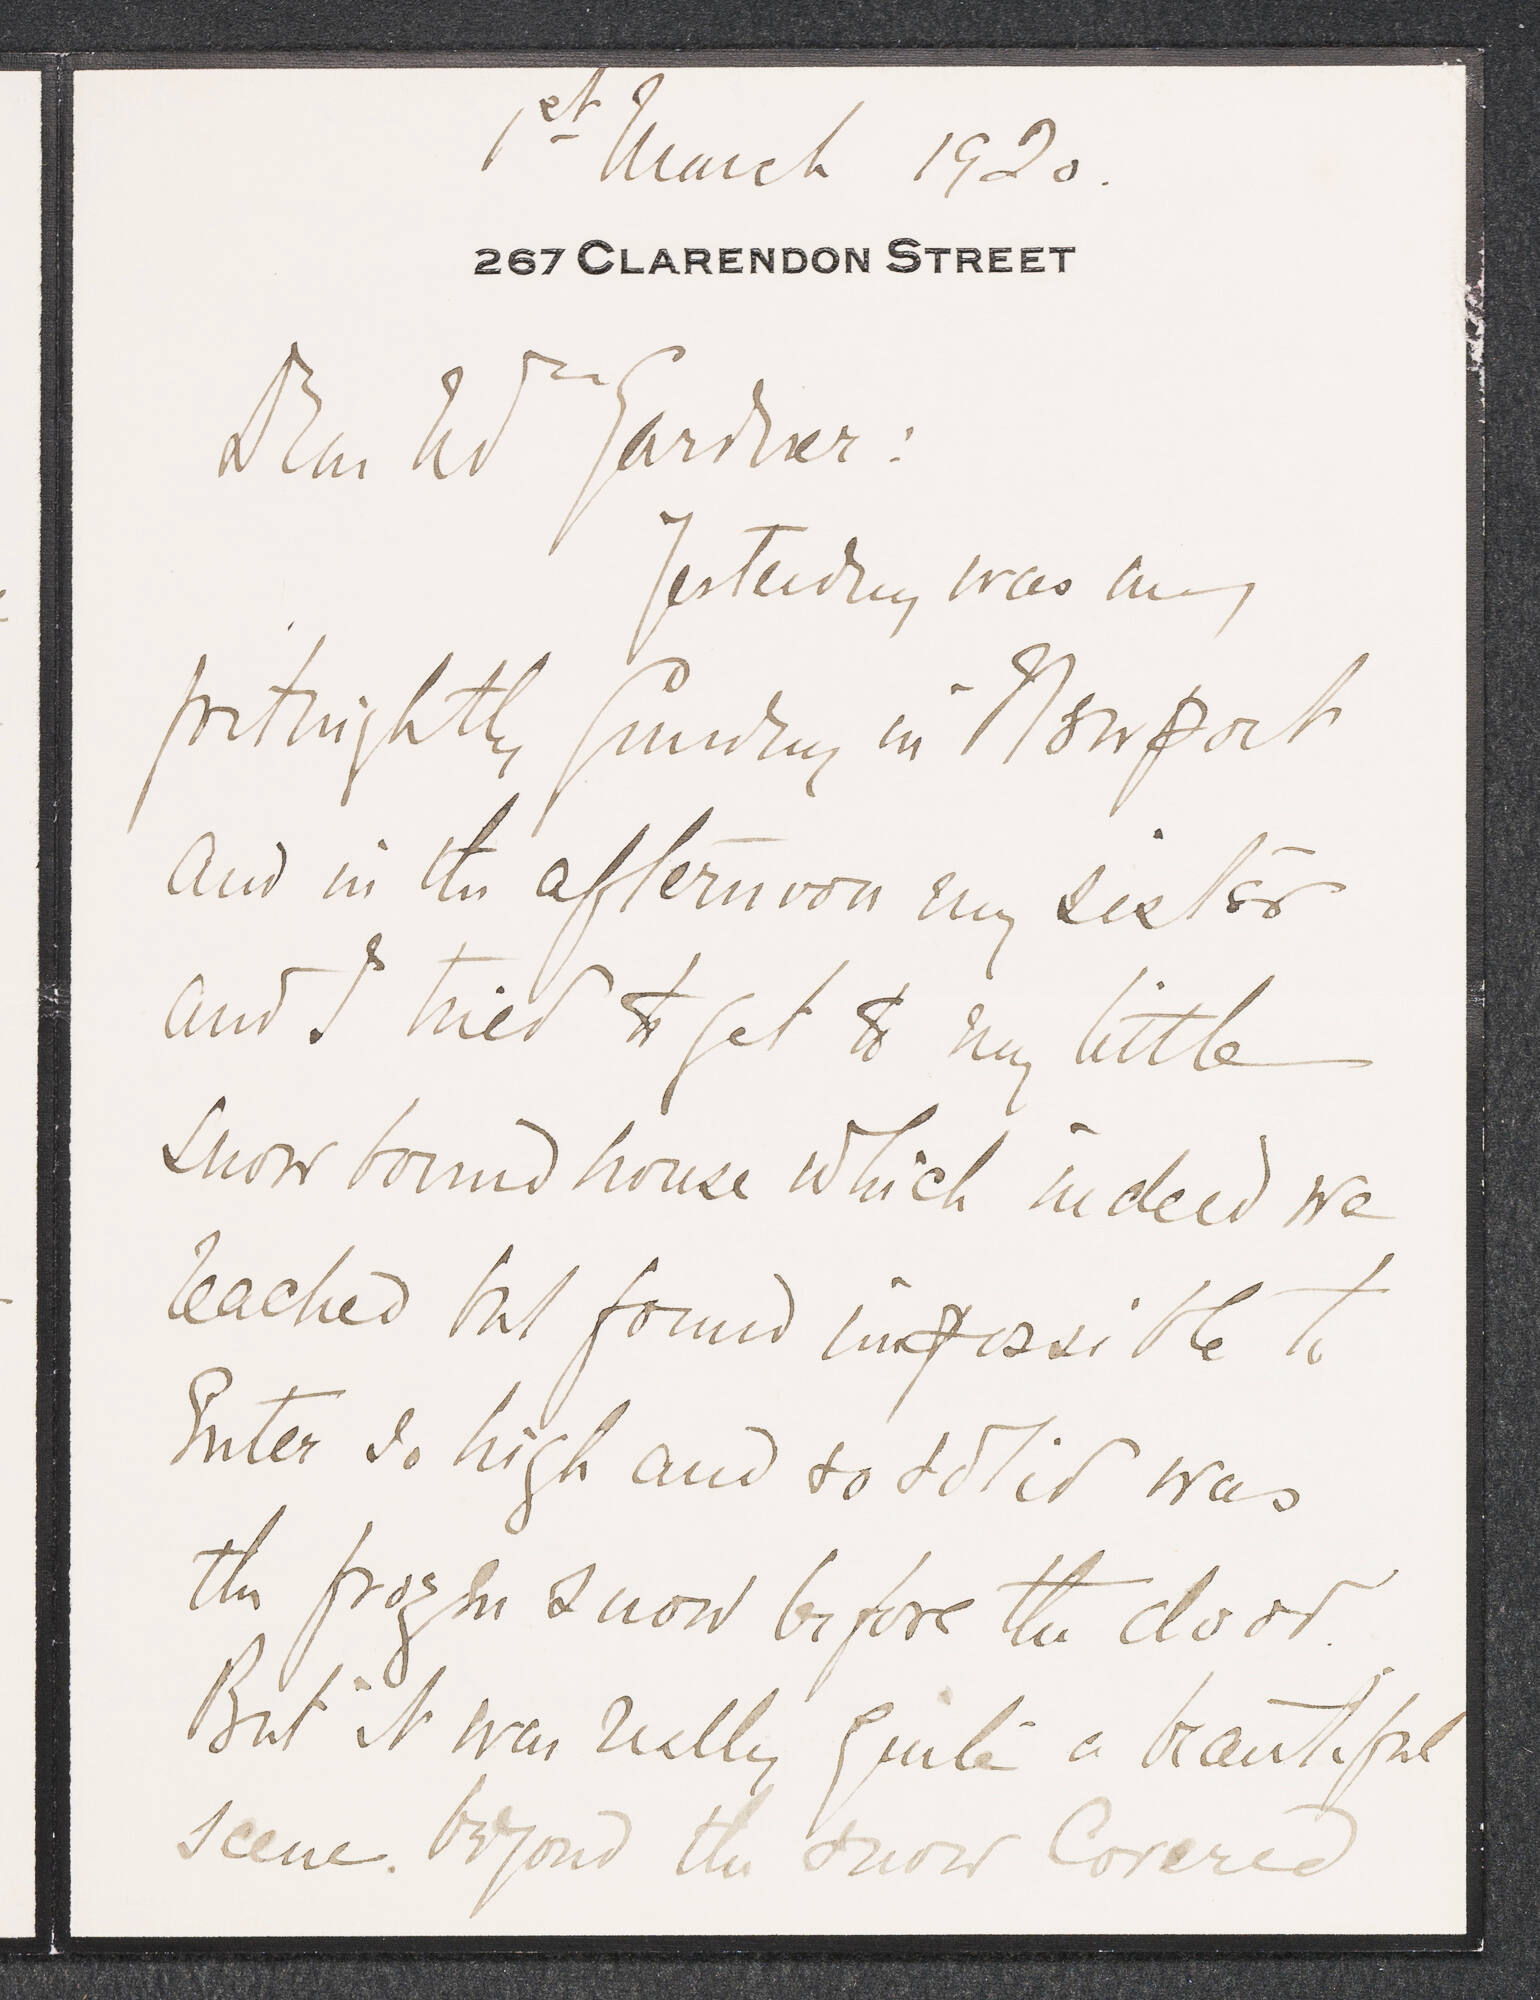 1st March 1920.
267 CLARENDON STREET
Dear Mrs Gardner:
Yesterday was my
fortnightly Sunday in Newport
and in the afternoon my sister
and I tried to get to my little
snow bound house which indeed we
reached but found impossible to
Enter so high and so solid was
the frozen snow before the door.
But it was really quite a beautiful
scene. beyond the snow Covered